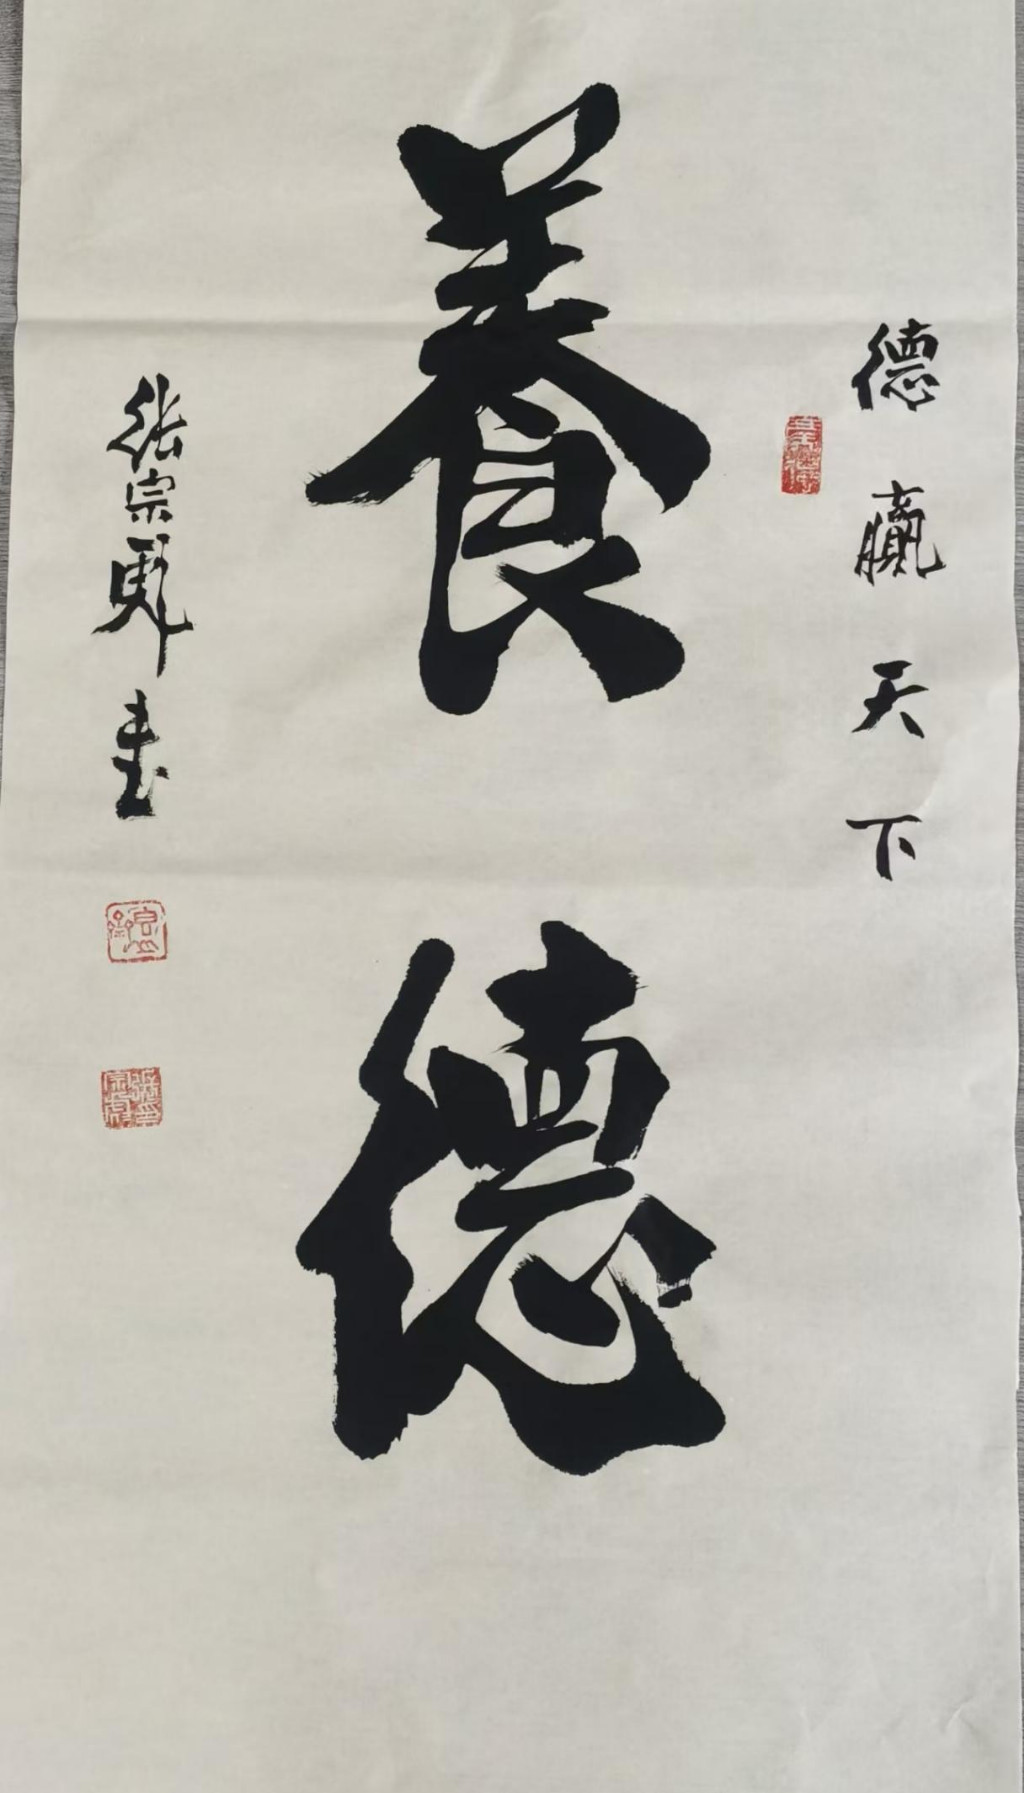 德赢天下
養德
张宗彪书